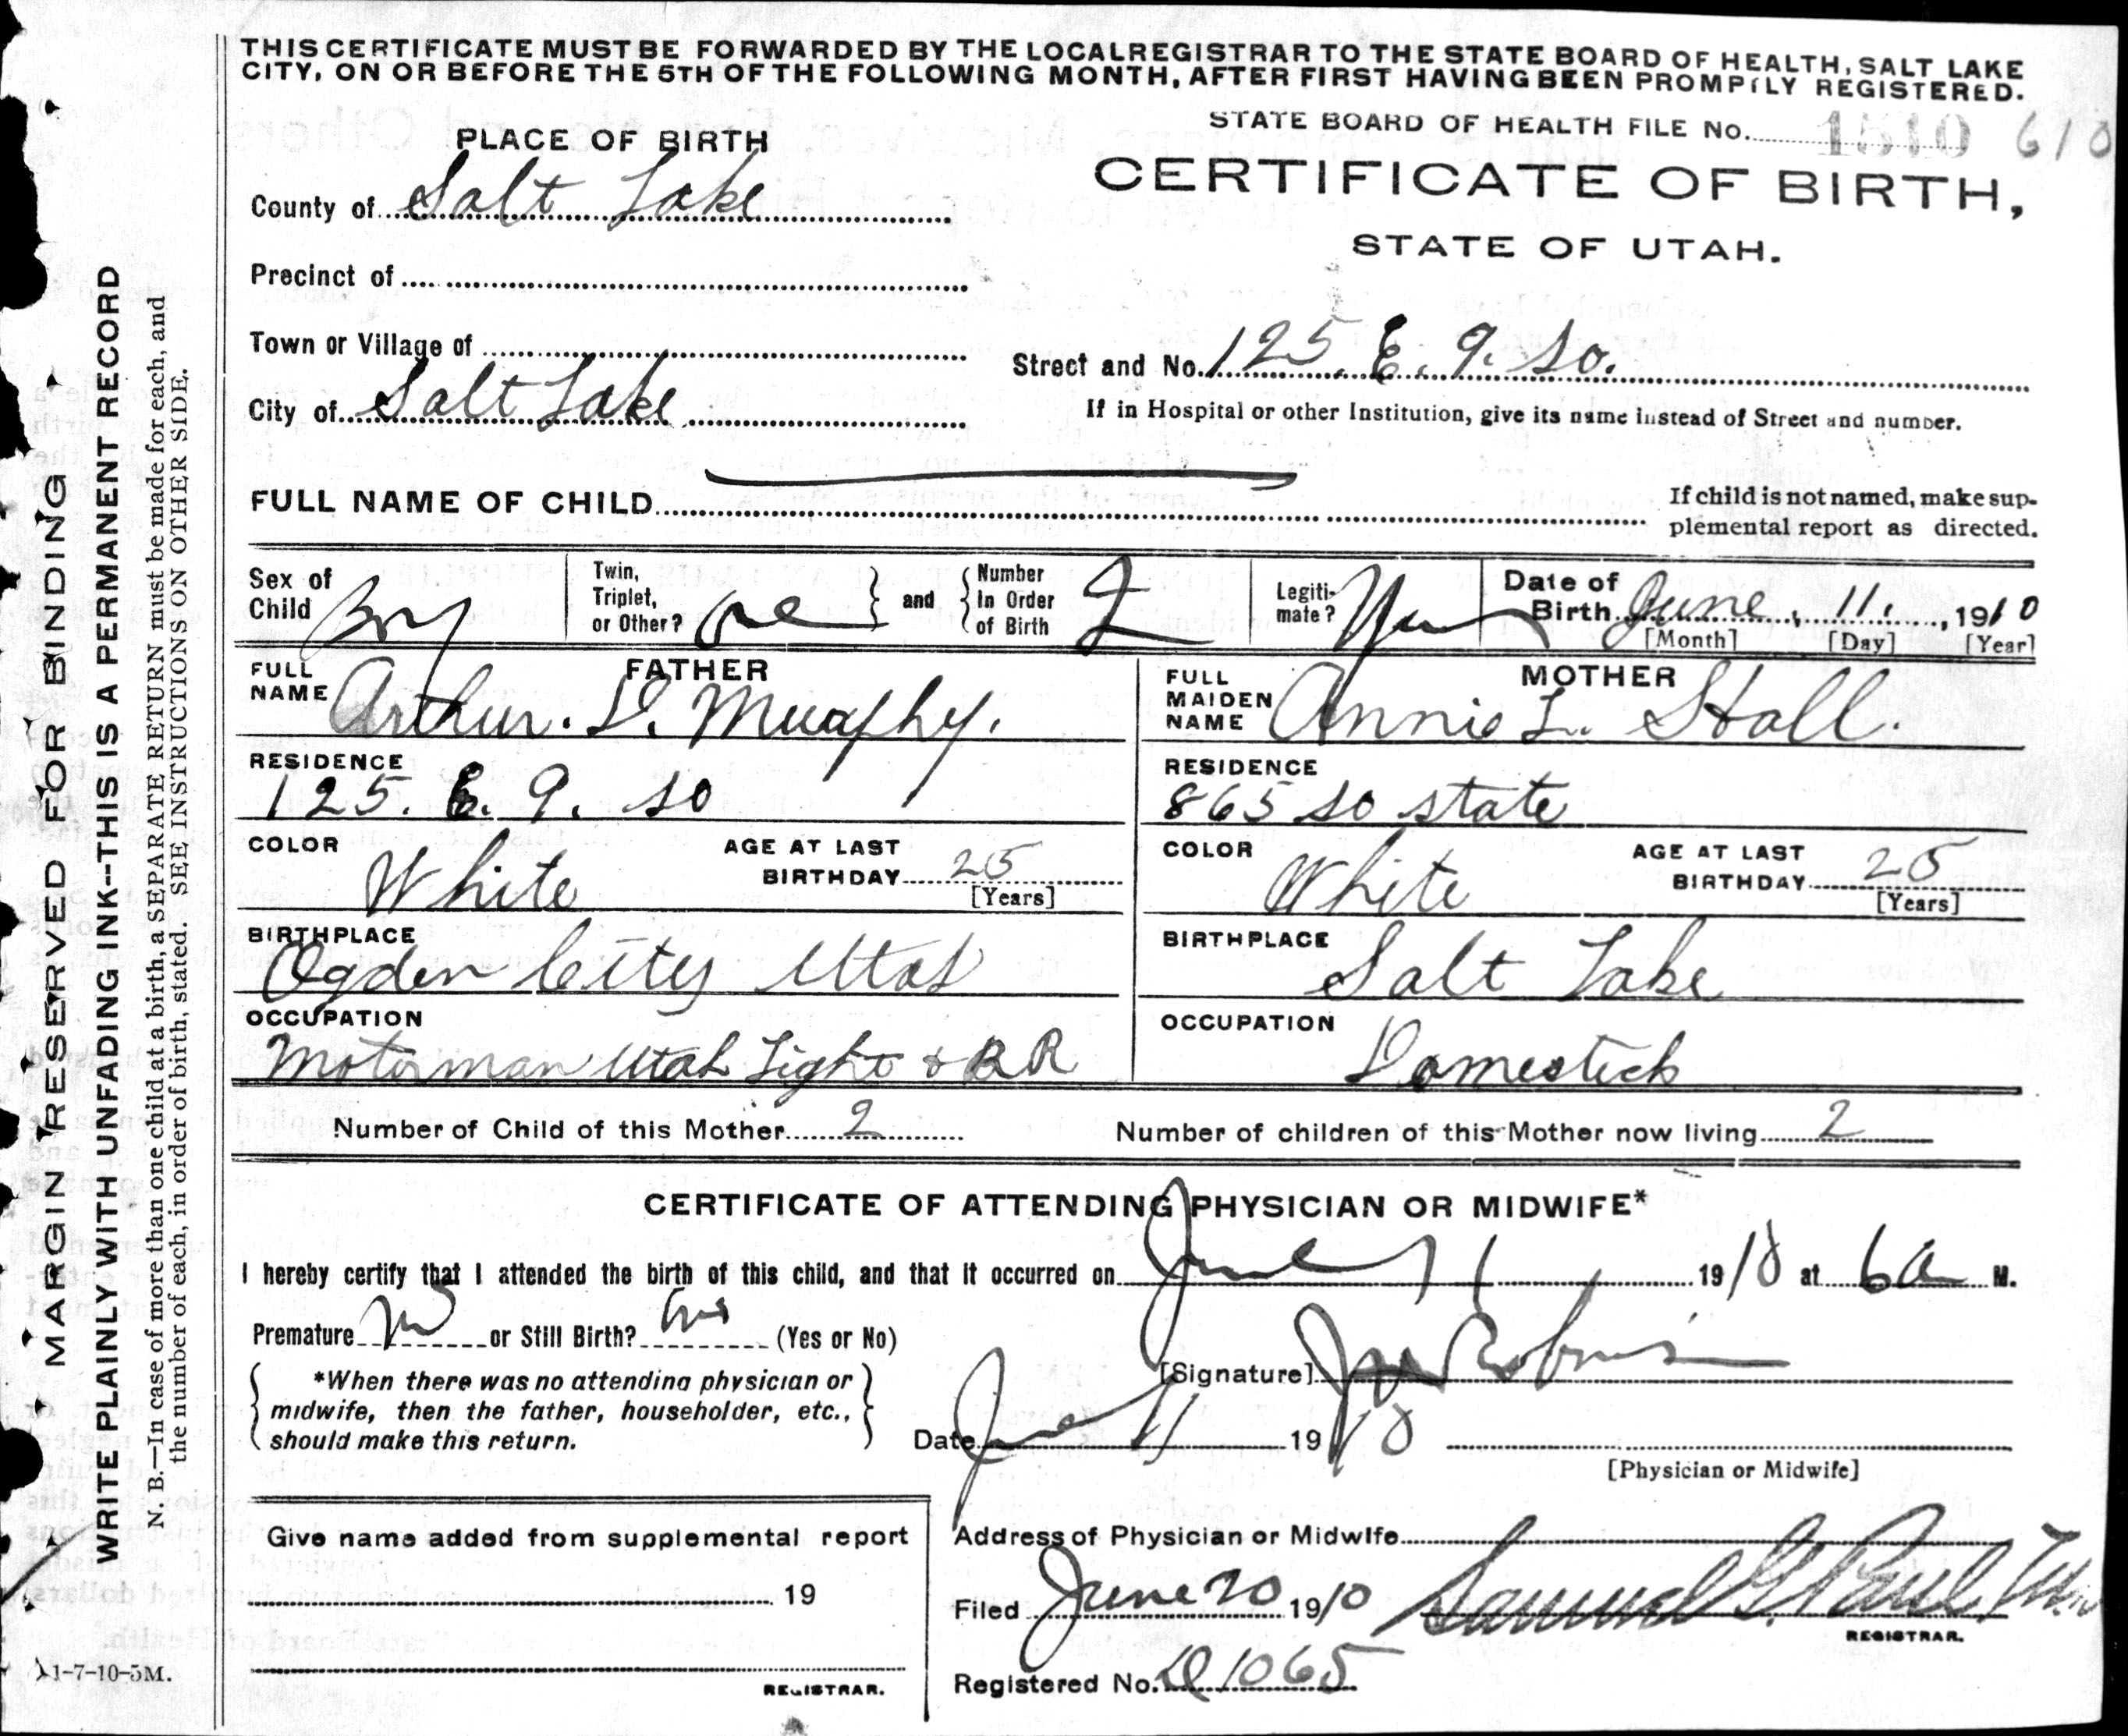 THIS CERTIFICATE MUST BE FORWARDED BY THE LOCAL REGISTRAR TO THE STATE BOARD OF HEALTH, SALT LAKE
CITY, ON OR BEFORE THE 5TH OF THE FOLLOWING MONTH, AFTER FIRST HAVING BEEN PROMPTLY REGISTERED.
STATE BOARD OF HEALTH FILE No. 1510 610
PLACE OF BIRTH
CERTIFICATE OF BIRTH,
County of Salt Lake
STATE OF UTAH.
Precinct of
Town or Village of
Street and No. 125. E. 9. So.
City of Salt Lake
If in Hospital or other Institution, give its name instead of Street and number.
FULL NAME OF CHILD
If child is not named, make sup-
plemental report as directed.
Sex of Child Boy
Twin, Triplet, or Other? one and Number In Order of Birth 2
Legiti-mate? Yes
Date of Birth June, 11, 1910
[Month] [Day] [Year]
FATHER
FULL NAME Arthur. D. Murphy.
MOTHER
FULL MAIDEN NAME Annie L. Stall.
RESIDENCE
125. E. 9. So
RESIDENCE
865 So State
COLOR White
AGE AT LAST BIRTHDAY 25
[Years]
COLOR White
AGE AT LAST BIRTHDAY 25
[Years]
BIRTHPLACE
Ogden City Utah
BIRTHPLACE
Salt Lake
OCCUPATION
Motorman Utah Light & RR
OCCUPATION
Domestick
Number of Child of this Mother 2
Number of children of this Mother now living 2
CERTIFICATE OF ATTENDING PHYSICIAN OR MIDWIFE*
I hereby certify that I attended the birth of this child, and that it occurred on June 11 1910 at 6 a M.
Premature no or Still Birth? no (Yes or No)
[Signature]
*When there was no attending physician or
midwife, then the father, householder, etc.,
should make this return.
Date June 11 1910
[Physician or Midwife]
Give name added from supplemental report
Address of Physician or Midwife
19
Filed June 20 1910 Samuel G. Paul
REGISTRAR.
Registered No. D1065
REGISTRAR.
1-7-10-5M.
MARGIN RESERVED FOR BINDING
WRITE PLAINLY WITH UNFADING INK--THIS IS A PERMANENT RECORD
N. B.—In case of more than one child at a birth, a SEPARATE RETURN must be made for each, and
the number of each, in order of birth, stated. SEE INSTRUCTIONS ON OTHER SIDE.